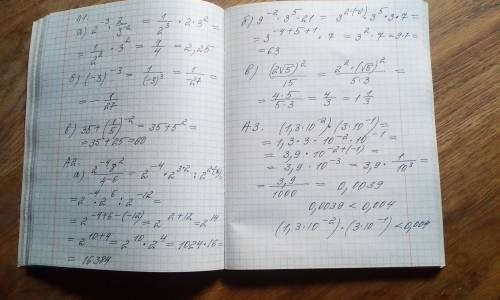 А1.
а) 2^-3 · 2/3^-2 = 1/2^3 · 2 · 3^2 =
= 1/2^2 · 3^2 = 9/4 = 2,25
б) (-3)^-3 = 1/(-3)^3 = 1/-27 =
= - 1/27
в) 35+(1/5)^-2 = 35+5^2 =
= 35+25=60
А2.
= 2^-4 · 2^6 : 2^-12 =
= 2^-4+6-(-12) = 2^2+12 = 2^14
2^10+4 = 2^10 · 2^4 = 1024·16=
= 16384
б) 9^-2 · 3^5 · 21 = 3^2·(-2) · 3^5 · 3 · 7 =
= 3^-4+5+1 · 7 = 3^2 · 7 = 9·7=
= 63
в) (2√5)^2/15 = 2^2·(√5)^2/5·3 =
= 4·5/5·3 = 4/3 = 1 1/3
А3. (1,3·10^-2)·(3·10^-1)=
= 1,3·3·10^-2·10^-1=
= 3,9 · 10^-2+(-1) =
= 3,9 · 10^-3 = 3,9 · 1/10^3 =
= 3,9/1000 = 0,0039
0,0039 < 0,004
(1,3·10^-2)·(3·10^-1) < 0,004